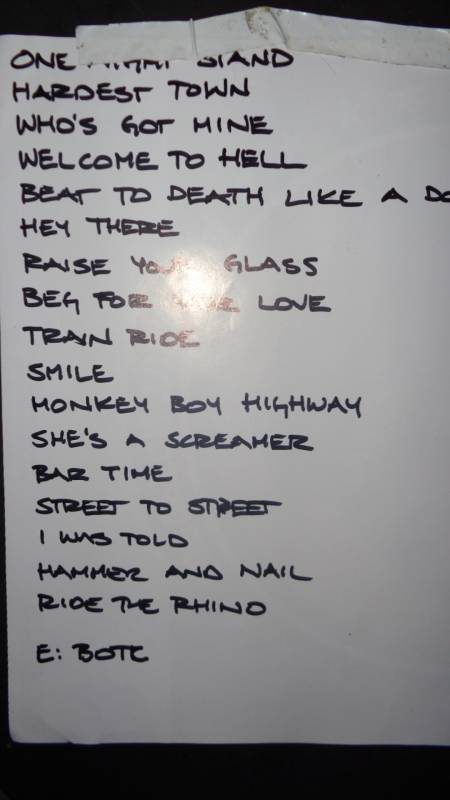 ONE NIGHT STAND
HARDEST TOWN
WHO'S GOT MINE
WELCOME TO HELL
BEAT TO DEATH LIKE A DO
HEY THERE
RAISE YOUR GLASS
BEG FOR YOUR LOVE
TRAIN RIDE
SMILE
MONKEY BOY HIGHWAY
SHE'S A SCREAMER
BAR TIME
STREET TO STREET
I WAS TOLD
HAMMER AND NAIL
RIDE THE RHINO
E: BOTC